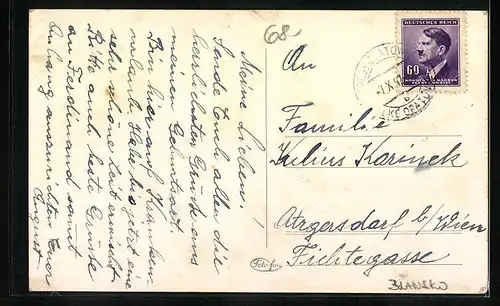 68-
Meine Lieben!
Sende Euch allen die
herzlichsten Grüsse aus
meinem Geburtsort.
Bin hier auf Kranken-
urlaub. Habe bis jetzt eine
sehr schöne Zeit
Bitte auch beste Grüsse
an Ferdinand samt
Anhang auszurichten Euer
August
An
Familie
Julius Karinek
Atzgersdorf b/Wien
Fichtegasse
BLANSKO
DEUTSCHES REICH
60
BÖHMEN UND MÄHREN
Foto-Fon